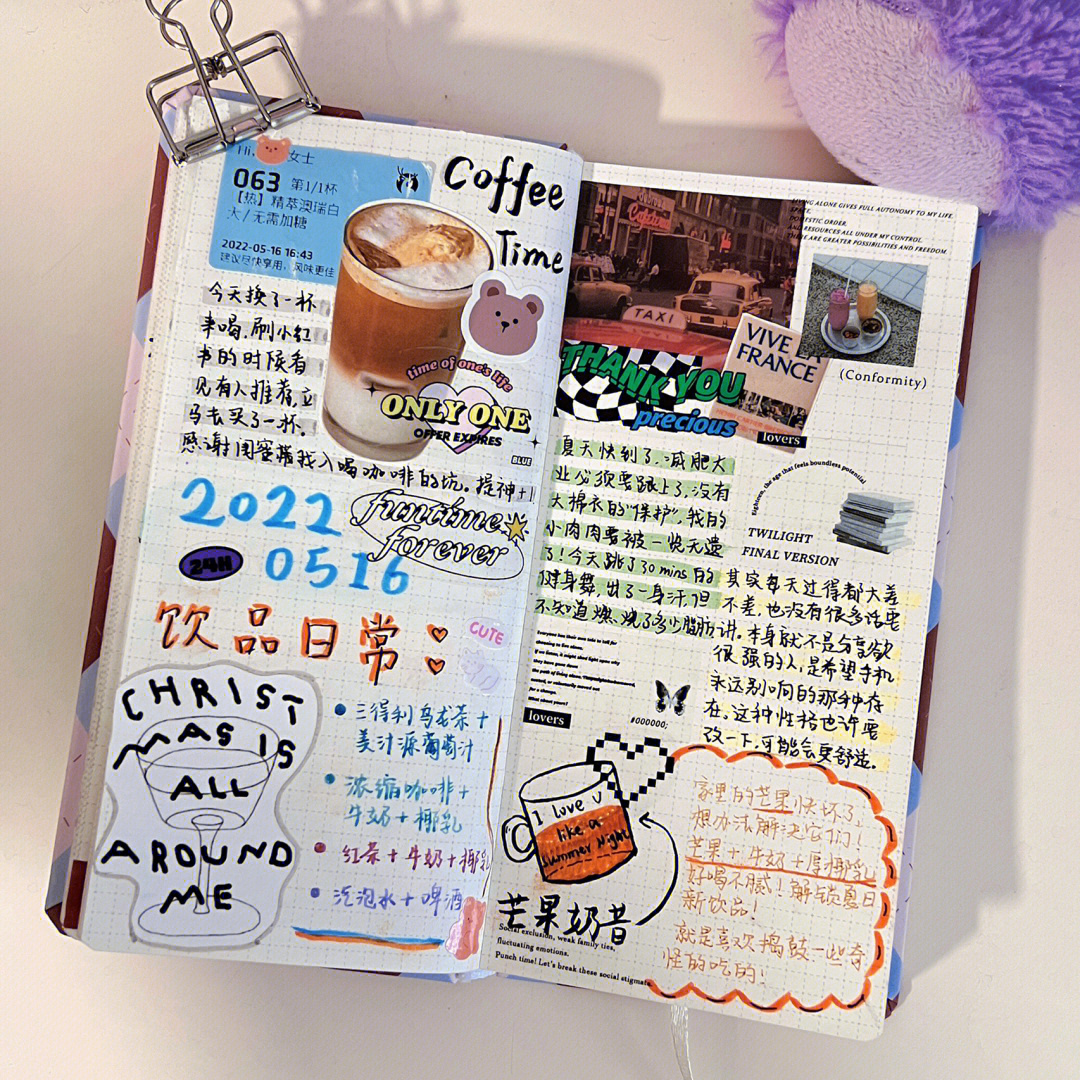 Hi, 女士
063 第1/1杯
【热】精萃澳瑞白
大/无需加糖
2022-05-16 16:43
建议尽快享用，风味更佳
Coffee
Time
今天换了一杯
来喝，刷小红
书的时候看
见有人推荐，立
马去买了一杯。
感谢闺蜜带我入喝咖啡的坑。提神+1
time of one's life
ONLY ONE
OFFER EXPIRES
BLUE
2022
0516
funtime
forever
24H
饮品日常
CUTE
CHRIST
MAS IS
ALL
AROUND
ME
三得利乌龙茶+
美汁源葡萄汁
浓缩咖啡+
牛奶+椰乳
红茶+牛奶+椰乳
汽泡水+啤酒
LIVING ALONE GIVES FULL AUTONOMY TO MY LIFE.
SPACE,
DOMESTIC ORDER,
AND RESOURCES ALL UNDER MY CONTROL.
THERE ARE GREATER POSSIBILITIES AND FREEDOM.
TAXI
VIVE LA
FRANCE
THANK YOU
precious
lovers
(Conformity)
夏天快到了，减肥大
业必须要跟上了，没有
大棉衣的"保护"，我的
小肉肉要被一览无遗
了！今天跳了30 mins的
健身舞，出了一身汗，但
不知道燃烧了多少脂肪
Eighteen, the age that feels boundless potential
TWILIGHT
FINAL VERSION
其实每天过得都大差
不差，也没有很多话要
讲。本身就不是分享欲
很强的人，是希望手机
永远别响的那种存
在。这种性格也许要
改一下，可能会更舒适。
Everyone has their own tale to tell for
for a change.
What about yours?
lovers
#000000;
I love U
like a
summer Night
芒果奶昔
Social exclusion, weak family ties,
fluctuating emotions.
Punch time! Let's break these social stigmate
家里的芒果快坏了
想办法解决它们！
芒果+牛奶+厚椰乳
好喝不腻！解锁夏日
新饮品！
就是喜欢捣鼓一些奇
怪的吃的！